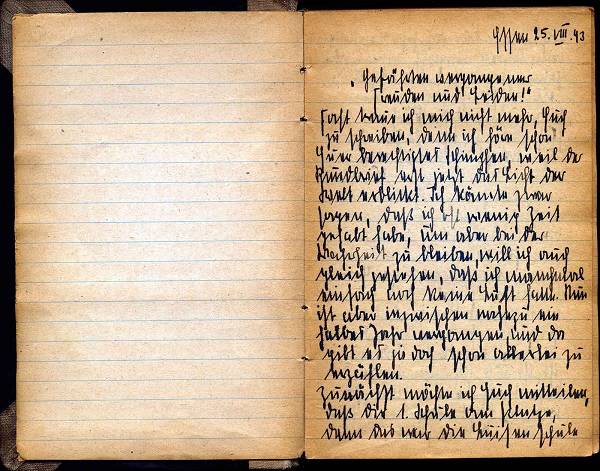 Essen 25.VIII.43
„Gefährten vergangener
Freuden und Leider!"
Fast traue ich mich nicht mehr, Euch
zu schreiben, denn ich höre schon
Euer berechtigtes Schimpfen, weil der
Rundbrief erst jetzt das Licht der
Welt erblickt. Ich könnte zwar
sagen, daß ich oft wenig Zeit
gehabt habe, um aber bei der
Wahrheit zu bleiben, will ich auch
gleich gestehen, daß ich manchmal
einfach noch keine Lust hatte. Nun
ist aber inzwischen nahezu ein
halbes Jahr vergangen, und da
gibt es ja doch schon allerlei zu
erzählen.
Zunächst möchte ich Euch mitteilen,
daß die 1. Schule am
denn das war die Luisenschule